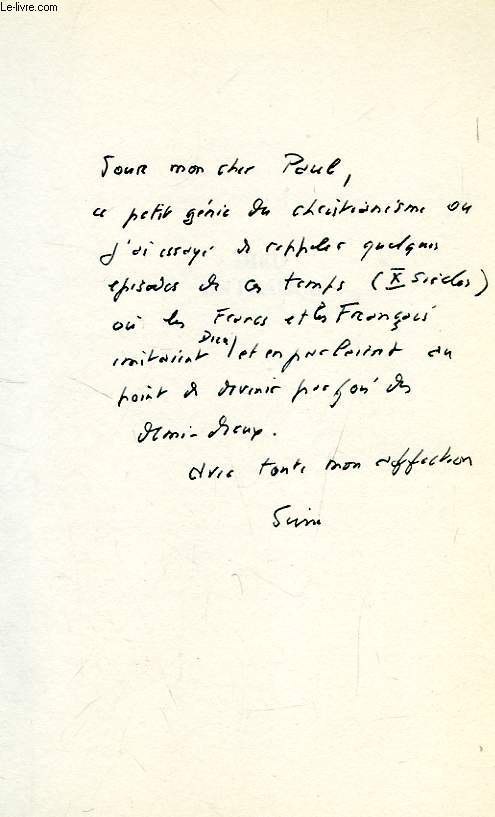 Le-livre.com
Pour mon cher Paul,
ce petit génie du christianisme où
j'ai essayé de rappeler quelques
épisodes de ces temps (X siècles)
où les Francs et les Français
imitaient Dieu et en parlaient au
point de devenir parfois des
demi-dieux.
avec toute mon affection